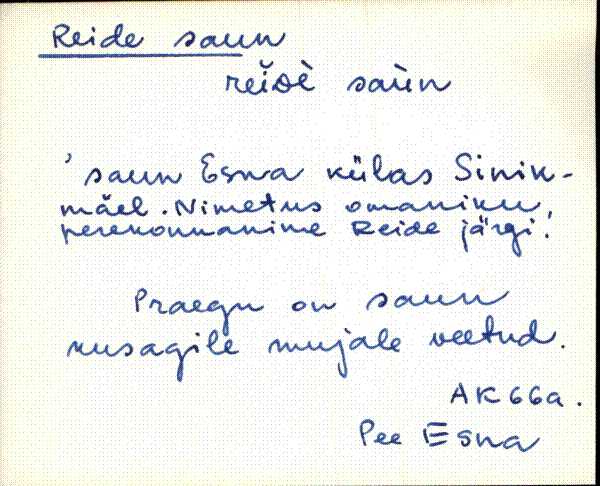 Reide saun
reĭdè saùn
'saun Esna külas Sinik-
mäel. Nimetus omaniku
perekonnanime Reide järgi.'
Praegu on saun
kusagile mujale veetud.
AK 66a.
Pee Esna